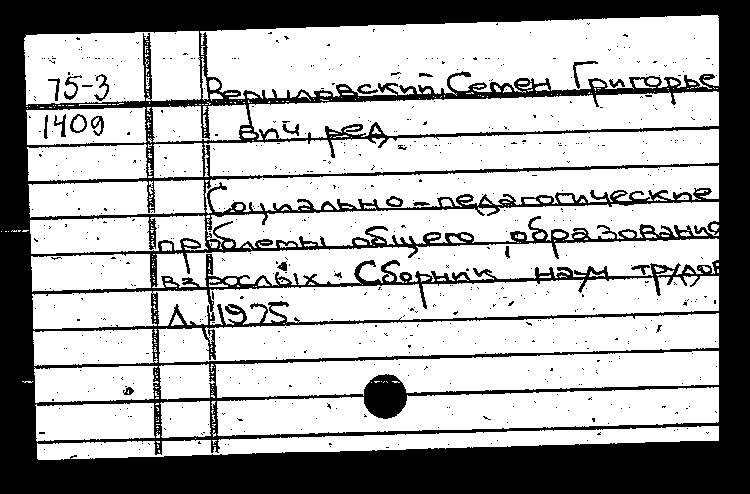 75-3 Вершловский, Семен Григорье
1409 вич, ред.
Социально-педагогические
проблемы общего образовани
взрослых. Сборник науч трудов
Л., 1975.